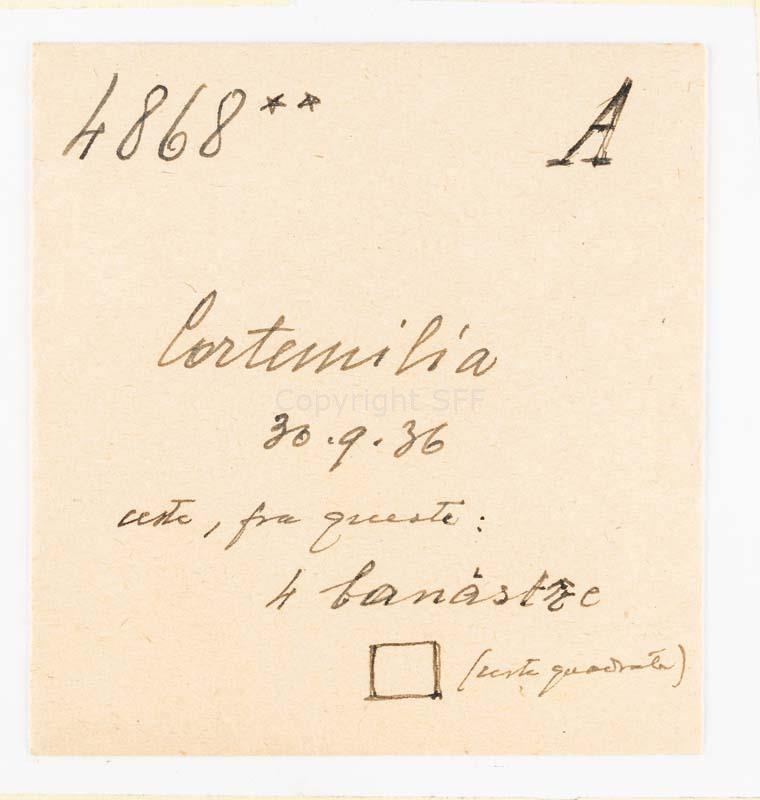 4868** A
Cortemilia
Copyright SFF
30.9.36
ceste, fra queste:
4 banástre
(ceste quadrate)